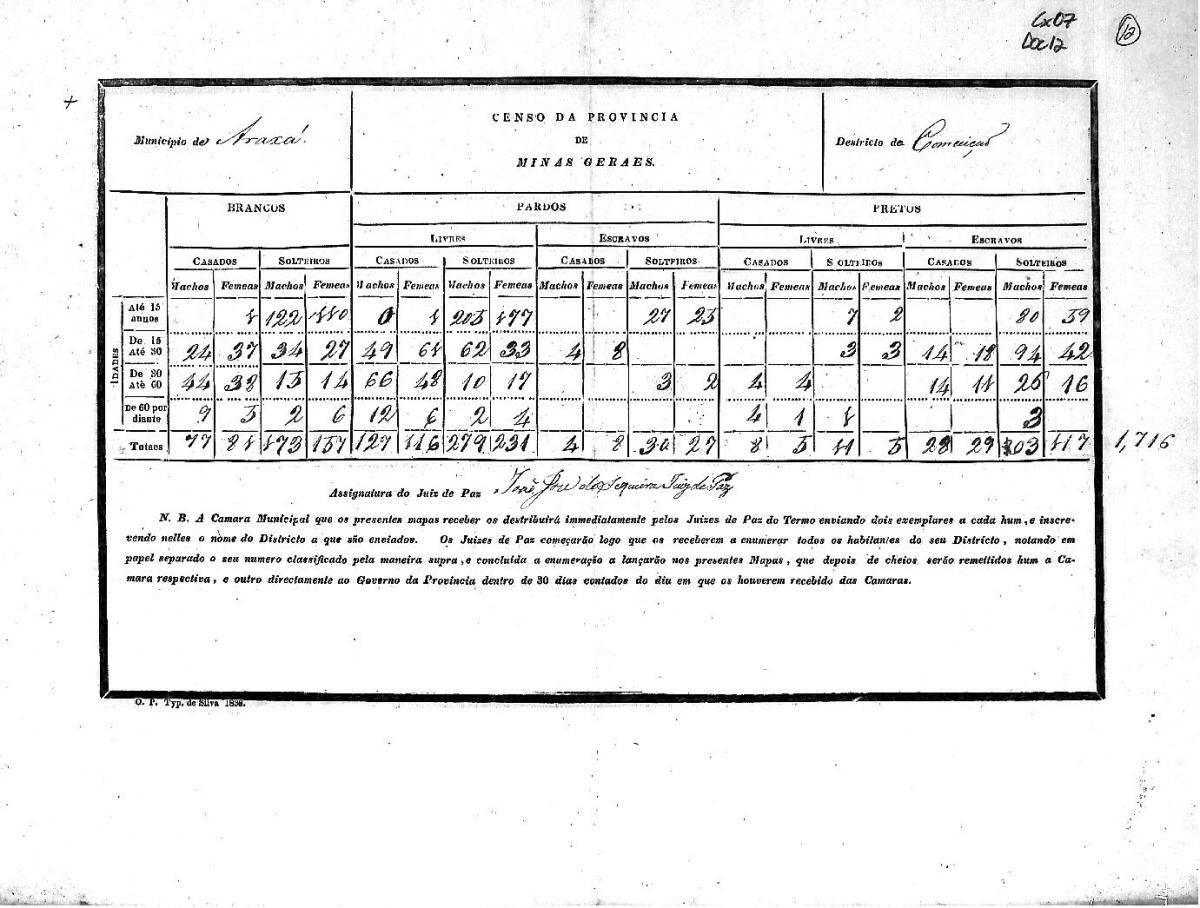 Cx07
Doc12
12
Municipio de Araxá.
CENSO DA PROVINCIA
DE
MINAS GERAES.
Destricto de Conceiçaõ
BRANCOS PARDOS PRETOS
LIVRES ESCRAVOS LIVRES ESCRAVOS
CASADOS SOLTEIROS CASADOS SOLTEIROS CASADOS SOLTEIROS CASADOS SOLTEIROS CASADOS SOLTEIROS
Machos Femeas Machos Femeas Machos Femeas Machos Femeas Machos Femeas Machos Femeas Machos Femeas Machos Femeas Machos Femeas Machos Femeas
IDADES
Até 15 annos 1 122 110 0 1 205 177 27 25 7 2 80 59
De 15 Até 30 24 37 34 27 49 61 62 33 4 8 3 3 14 18 94 42
De 30 Atè 60 44 38 15 14 66 48 10 17 3 2 4 4 14 11 26 16
De 60 por diante 9 5 2 6 12 6 2 4 4 1 1 3
Totaes 77 81 173 157 127 116 279 231 4 8 30 27 8 5 11 5 28 29 203 117 1,716
Assignatura do Juiz de Paz João José de Sequeira Juiz de Paz
N. B. A Camara Municipal que os presentes mapas receber os destribuirá immediatamente pelos Juizes de Paz do Termo enviando dois exemplares a cada hum, e inscre-
vendo nelles o nome do Districto a que são enviados. Os Juizes de Paz começarão logo que os receberem a enumerar todos os habitantes do seu Districto, notando em
papel separado o seu numero classificado pela maneira supra, e concluida a enumeração a lançarão nos presentes Mapas, que depois de cheios serão remettidos hum a Ca-
mara respectiva, e outro directamente ao Governo da Provincia dentro de 30 dias contados do dia em que os houverem recebido das Camaras.
O. P. Typ. de Silva 1838.